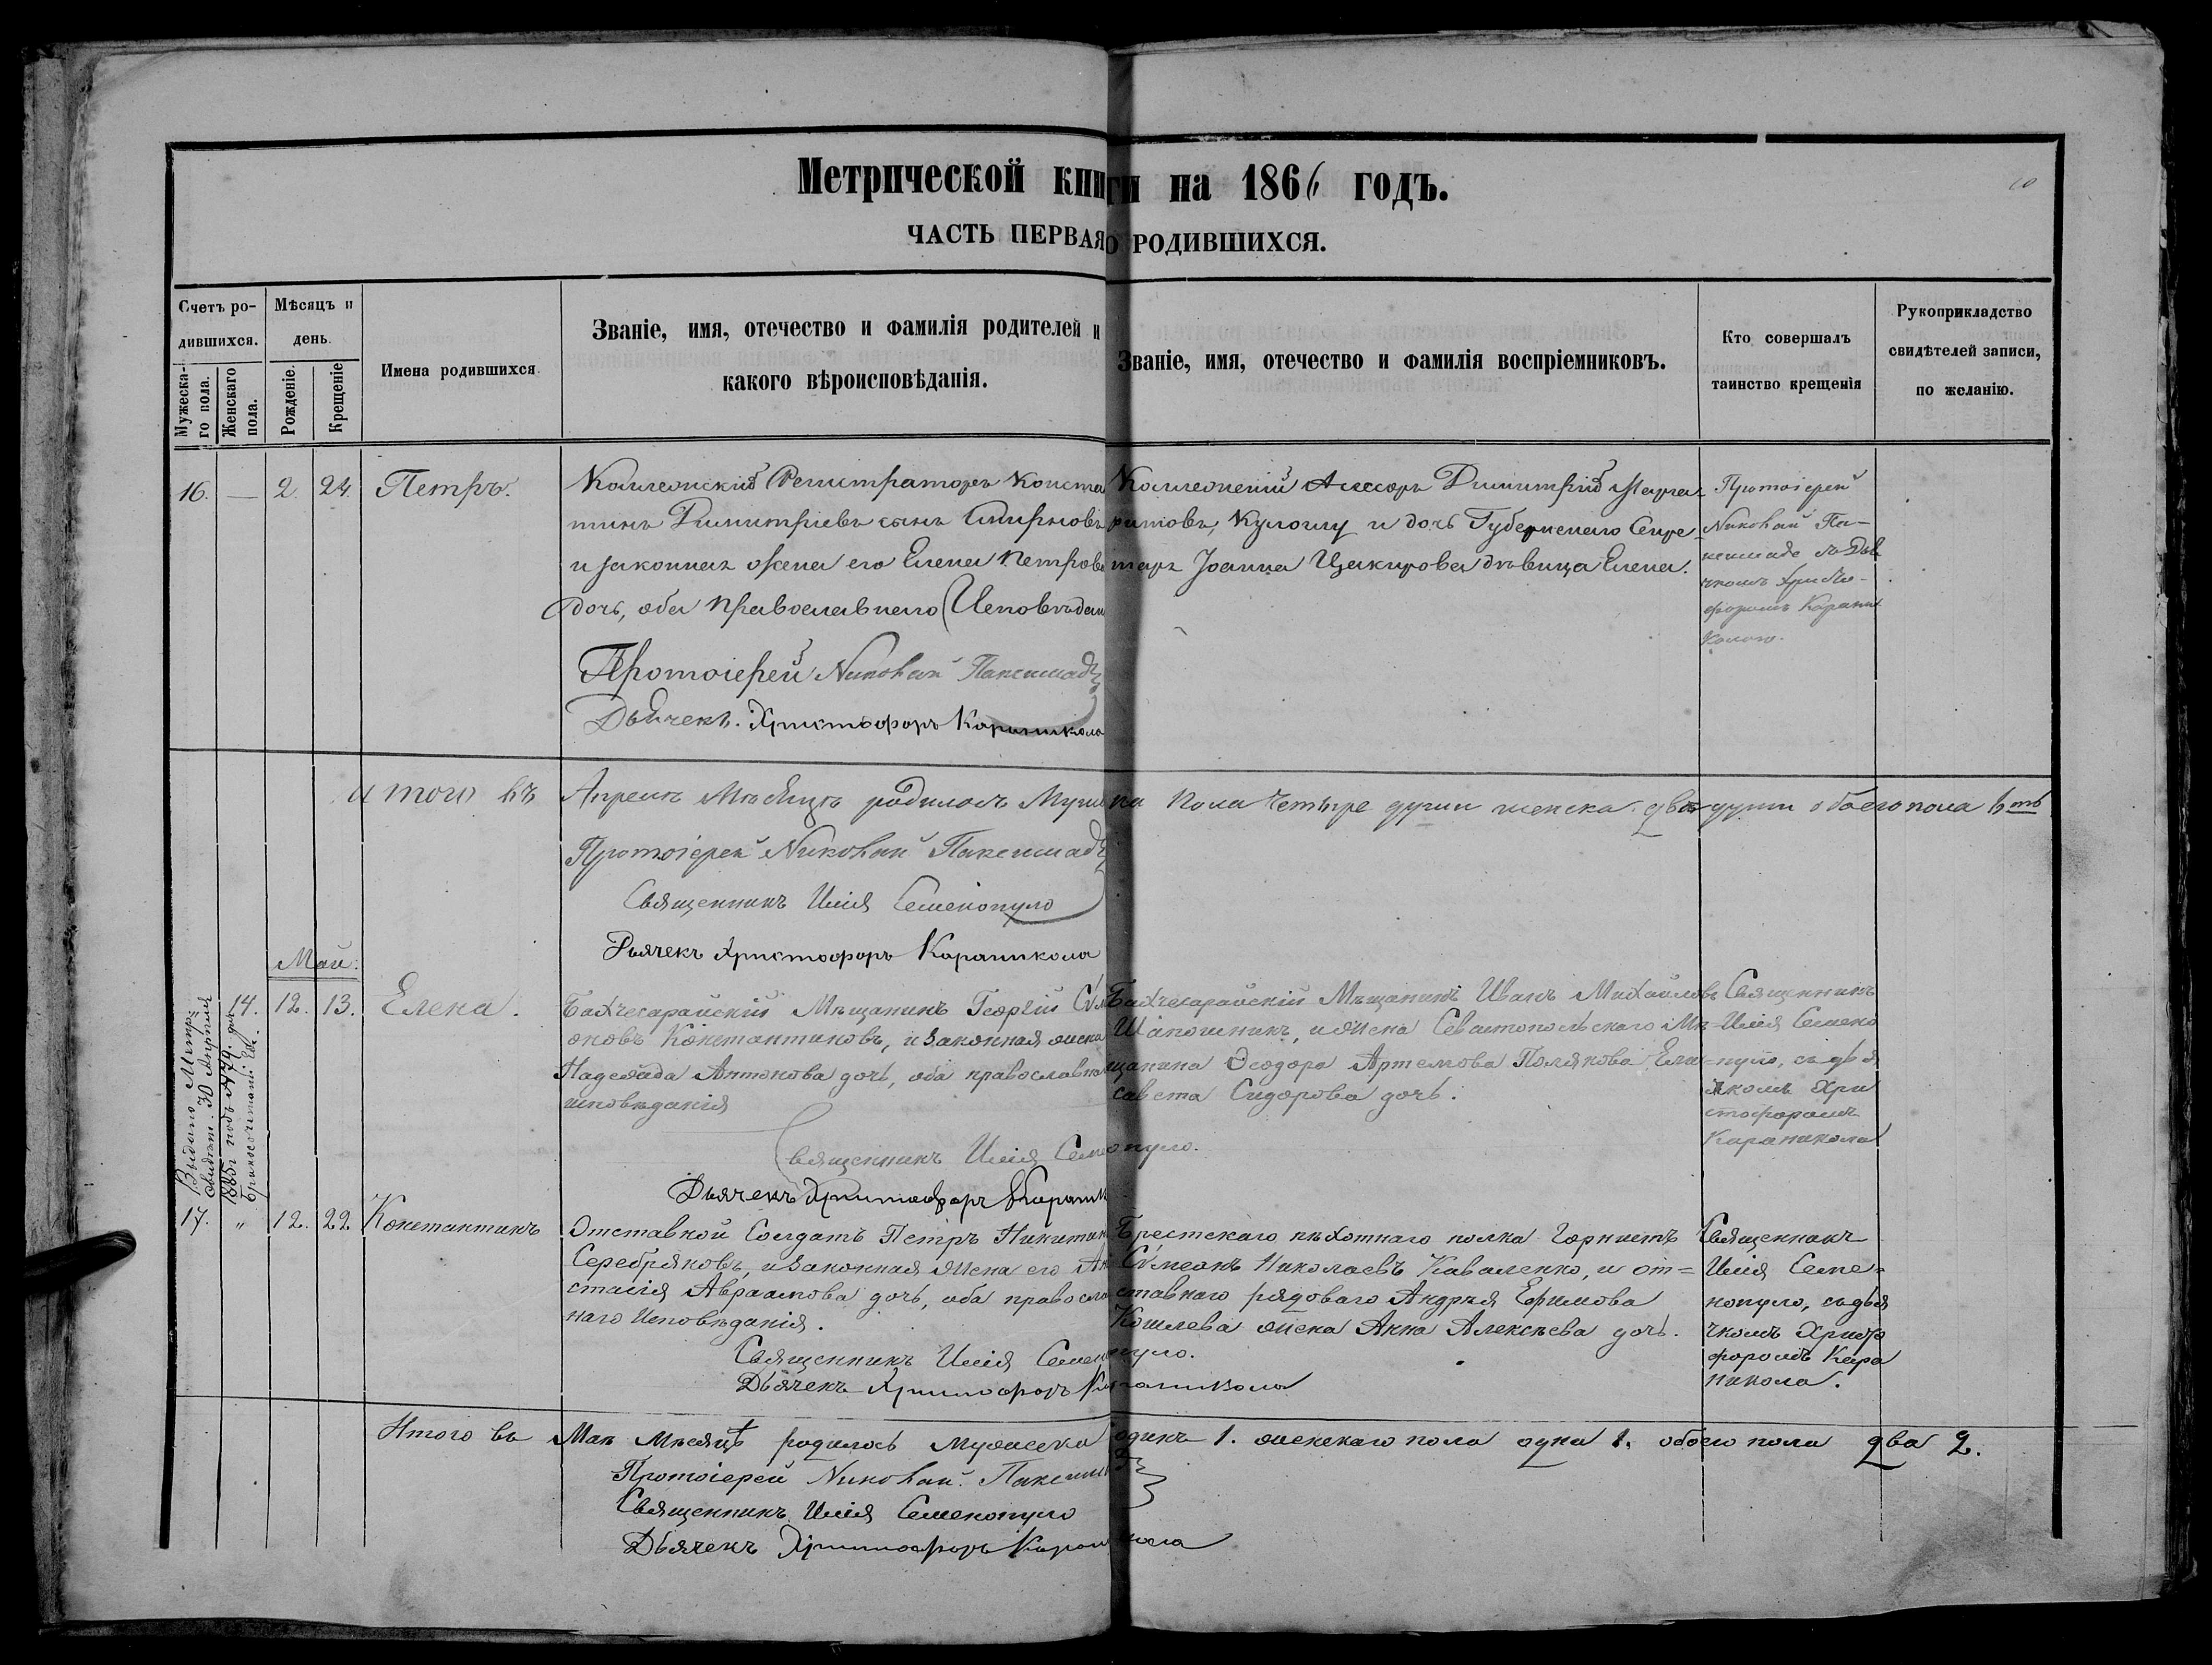 Метрической книги на 1866 годъ.
10
ЧАСТЬ ПЕРВАЯ О РОДИВШИХСЯ.
Счетъ ро-
дившихся.
Мужеска-
го пола.
Женскаго
пола.
Мѣсяцъ и
день.
Рожденіе.
Крещеніе
Имена родившихся.
Званіе, имя, отечество и фамилія родителей и
какого вѣроисповѣданія.
Званіе, имя, отечество и фамилія воспріемниковъ.
Кто совершалъ
таинство крещенія
Рукоприкладство
свидѣтелей записи,
по желанію.
16. — 2. 24. Петръ.
Коллежскій Регистраторъ Конста
тинъ Димитріевъ сынъ Смирновъ
и законная жена его Елена Петрова
дочь, оба православнаго Исповѣдан
Протоіерей Николай Паксимад
Дьячекъ. Христофоръ Караникола
Коллежскій Ассесоръ Димитрій
Кулошу и дочь Губернскаго Секре-
таря Іоанна Цакирова дѣвица Елена.
Протоіерей
Николай Па-
ксимаде съ Дья
чкомъ Христо-
форомъ Карани
колою.
Итого въ Апрелѣ Мѣсяцѣ родилось Муж
на пола четыре души женска двѣ души обоего пола 6ть
Протоіерей Николай Паксимад
Священникъ Илія Семенопуло
Дьячекъ Христофоръ Караникола
Май.
14. 12. 13. Елена.
Бахчесарайскій Мѣщанинъ Георгій Сѵм
оновъ Константиновъ, и законная жена
Надежда Антонова дочь, оба православна
исповѣданія
Священникъ Илія Семенопуло.
Дьячекъ Христофоръ Караник
Бахчесарайскій Мѣщанинъ Иванъ Михайловъ
Шапошникъ, и жена Севастопольскаго Мѣ-
щанина Ѳеодора Артемова Полякова Ели-
савета Сидорова дочь.
Священникъ
Илія Семено
пуло, съ дья
чкомъ Хри
стофоромъ
Караникола
Выдано Метр.
свидѣт. 30 Апрѣля
1885 г подъ №79. для
бракосочитані. Ея.
17. " 12. 22. Константинъ
Отставной Солдатъ Петръ Никитин
Серебряковъ, и законная жена его Ан
стасія Авраамова дочь, оба правосла
наго Исповѣданія.
Священникъ Илія Семенопуло.
Дьячекъ Христофоръ Караникола
Брестскаго пѣхотнаго полка Горнистъ
Сѵмеонъ Николаевъ Каваленко, и от=
ставнаго рядоваго Андрѣя Ефимова
Кошлева жена Анна Алексѣева дочь.
Священникъ
Илія Семе=
нопуло, съ дья
чкомъ Христо
форомъ Кара
никола.
Итого въ Маѣ Мѣсяцѣ родилось мужеска одинъ 1. женскаго пола одна 1. обоего пола два 2.
Протоіерей Николай Паксимад
Священникъ Илія Семенопуло
Дьячекъ Христофоръ Караникола